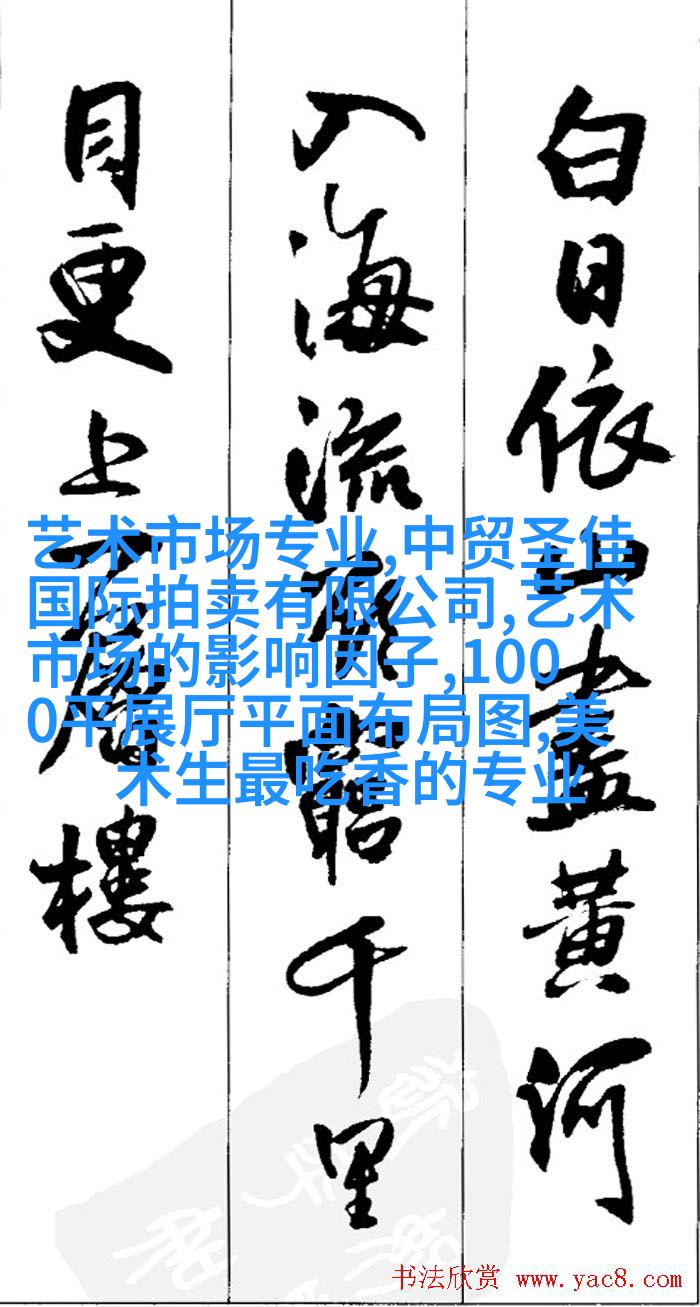 白日依山盡黄河
入海流欲窮千里
目更上一層樓
艺术市场专业,中贸圣佳
国际拍卖有限公司,艺术
市场的影响因子,100
0平展厅平面布局图,美
术生最吃香的专业
书法欣赏 www.yac8.com